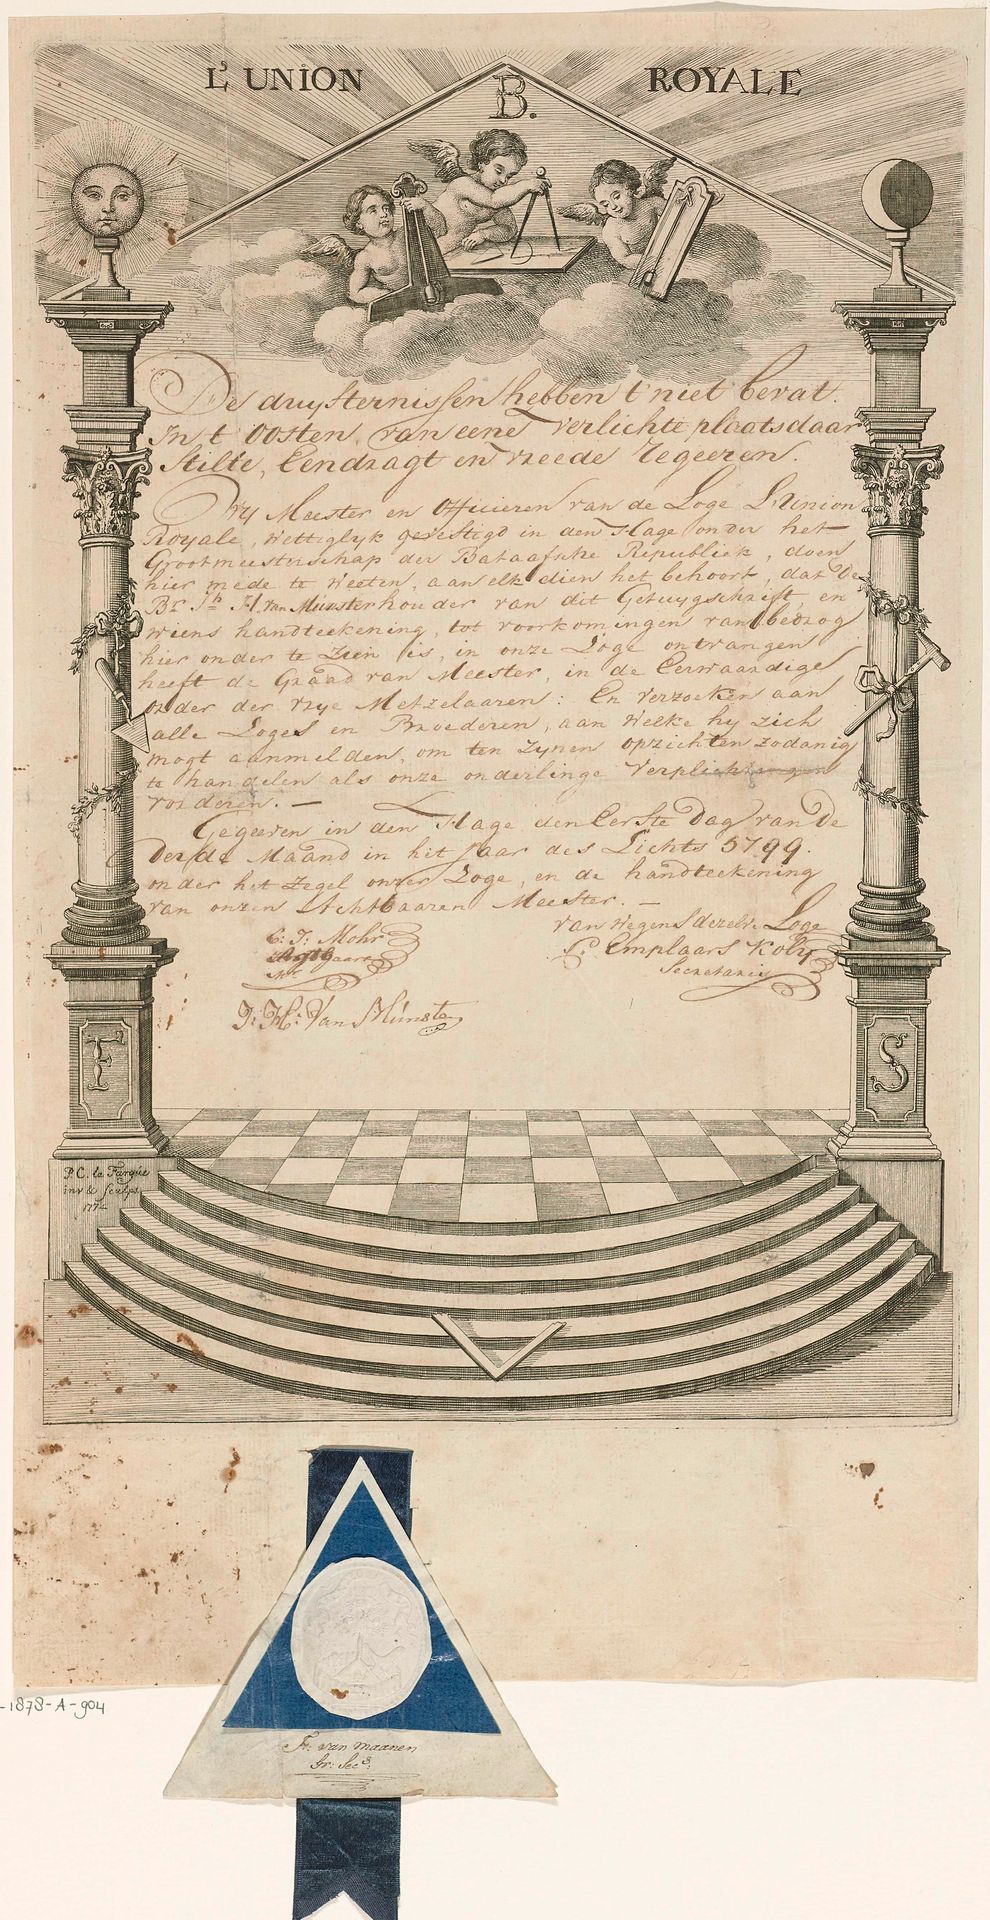 L'UNION ROYALE
B.
De duysternissen hebben t' niet bevat.
In t Oosten van eene Verlichte plaats daar
Stilte, Eendragt en vreede Regeeren.
Wy Meester en Officieren van de Loge L'Union
Royale, Wettiglyk gevestigd in den Hage onder het
Grootmeesterschap der Bataafsche Republiek, doen
hier mede te Weeten, aan elk dien het behoort, dat De
Br. H. Van Münster houder van dit Getuygschrift, en
wiens handteekening, tot voorkomingen van bedrog
hier onder te Zien is, in onze Loge ontvangen
heeft de Graad van Meester, in de Eerwaardige
order der vrye Metzelaaren: En Verzoeken aan
alle Loges en Broederen, aan Welke hy zich
mogt aanmelden, om ten Zynen opzichten zodanig
te handelen als onze onderlinge Verplichtingen
vorderen. —
Gegeeven in den Hage den Eerste Dag van De
Derde Maand in het Jaar des Lichts 5799.
onder het Zegel onzer Loge, en de handteekening
van onzen Achtbaaren Meester. —
C: J: Mohr
Van Wegens dezelve Loge
P. Emplaars Koly
Secretaris
J: H: Van Münster
F
S
P. C. la Fargue
inv & Sculps.
1772
Fr: van maanen
Gr: Sec.
-1878-A-904